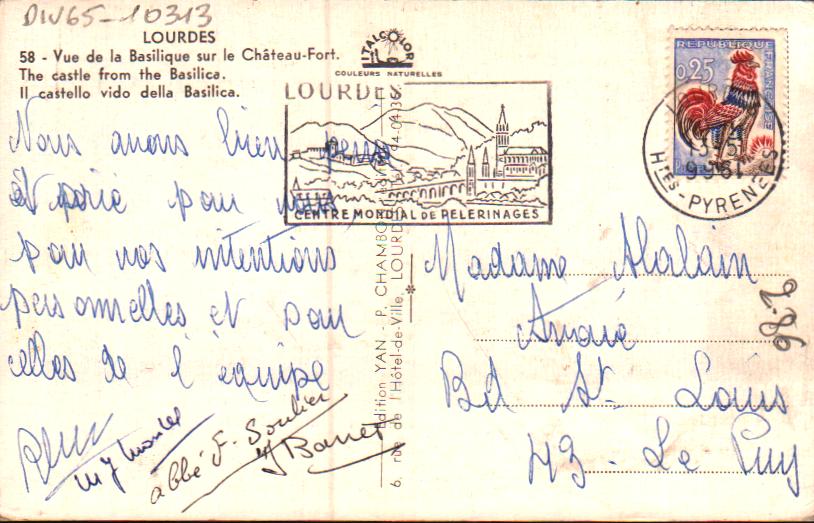 DIV65-10313
LOURDES
58 - Vue de la Basilique sur le Château-Fort.
The castle from the Basilica.
Il castello vido della Basilica.
ITALCOLOR
COULEURS NATURELLES
LOURDES
CENTRE MONDIAL DE PELERINAGES
REPUBLIQUE FRANÇAISE
0,25
13-15
Htes-PYRENEES
Nous avons bien pensé
et prié pour vous
pour vos intentions
personnelles et pour
celles de l'équipe
abbé F. Soulier
Edition YAN - P. CHAMBOU
6, rue de l'Hôtel-de-Ville, LOURDES
Madame Alalain
Bd St Louis
43 - Le Puy